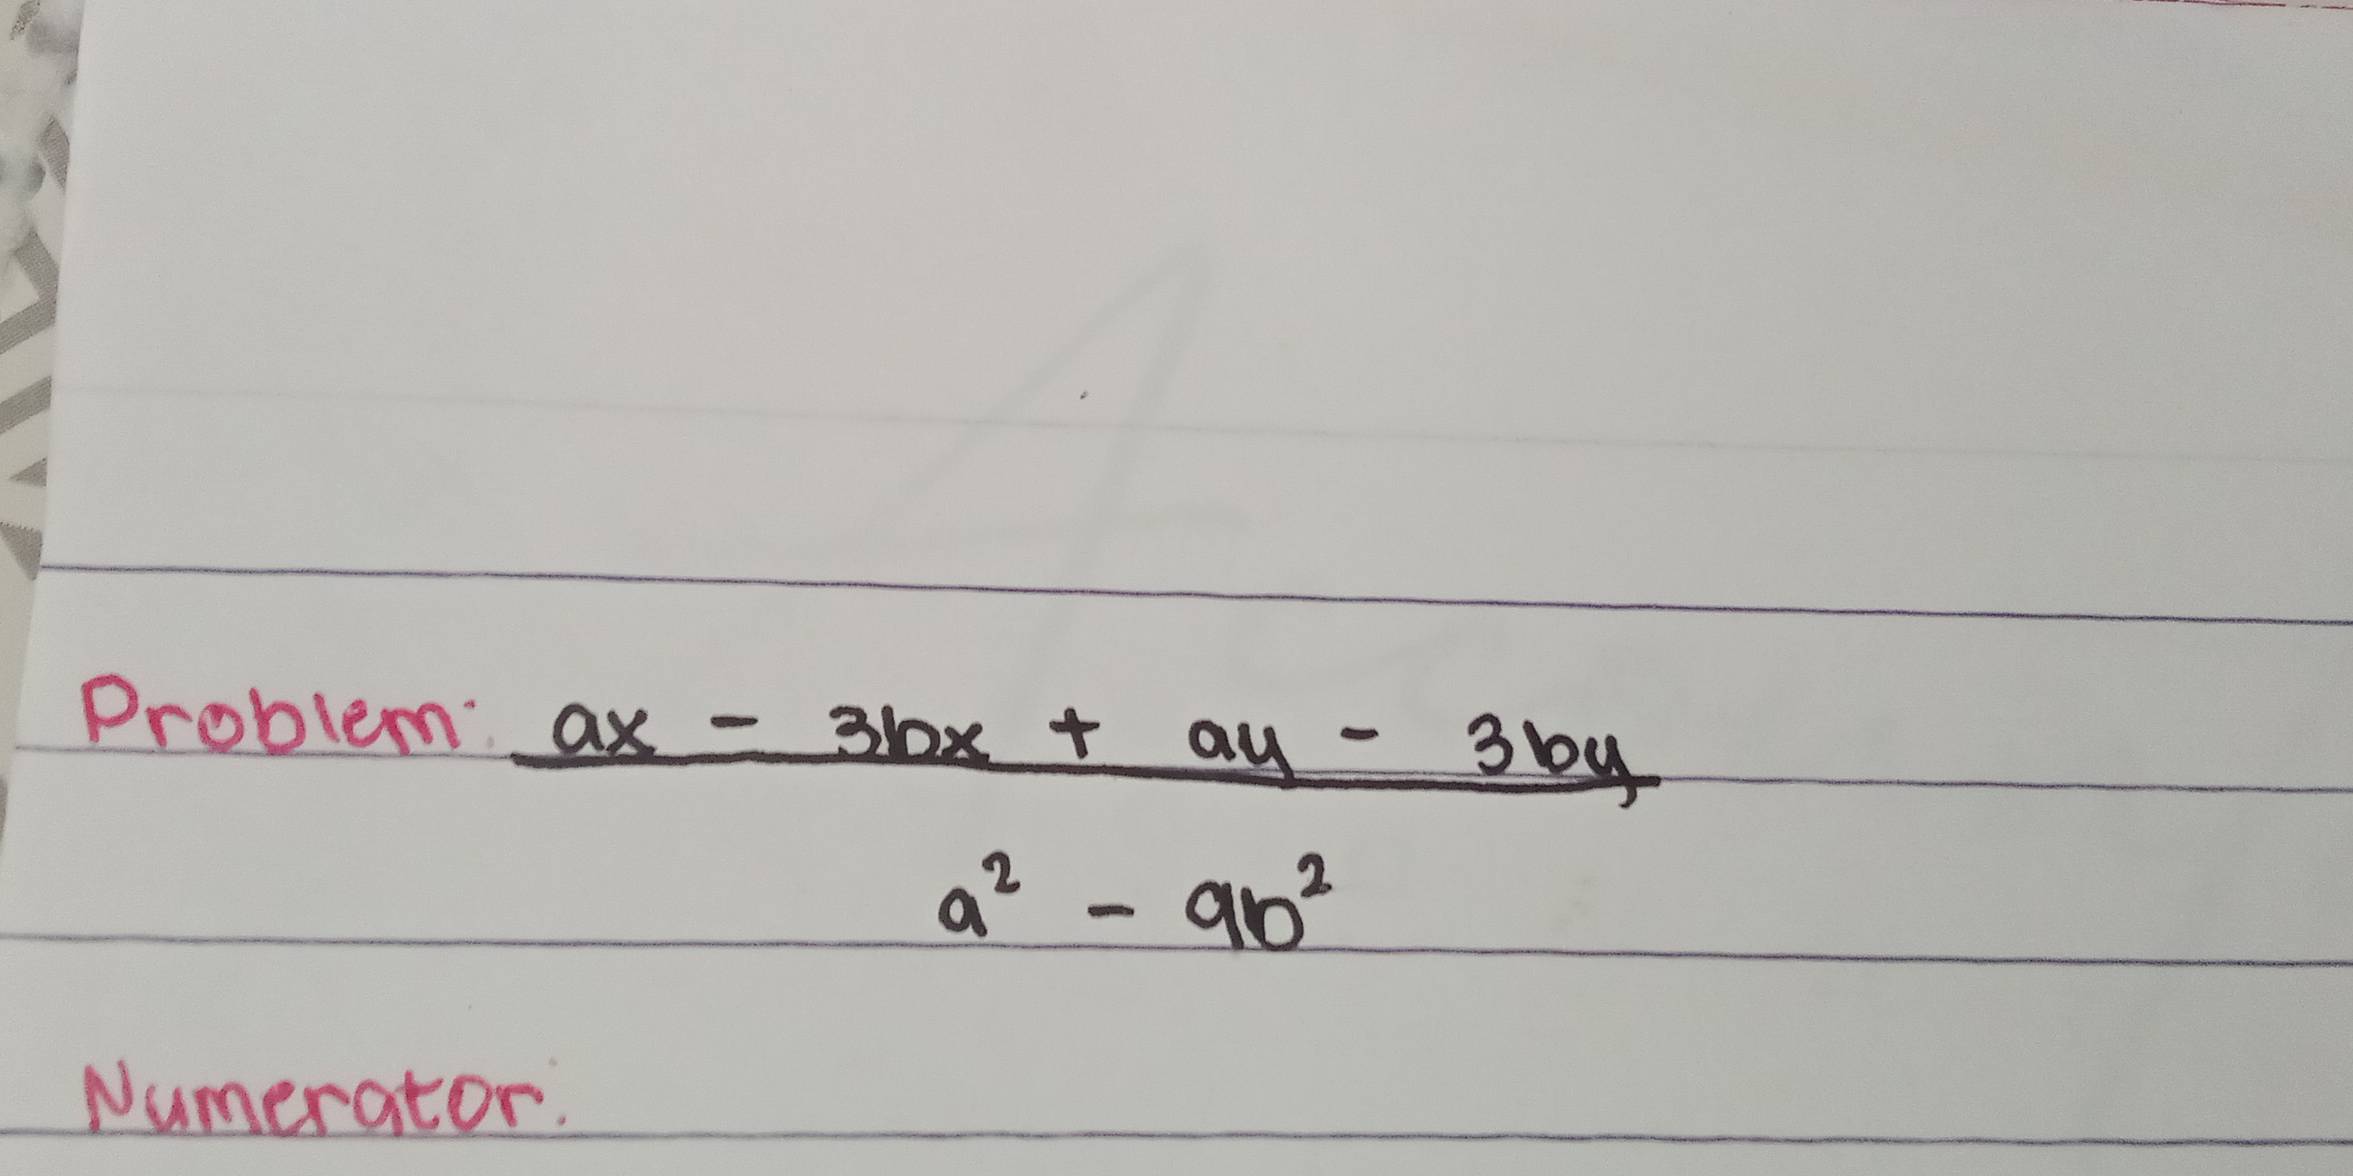 Problem: ax - 3bx + ay - 3by
a² - 9b²
Numerator: